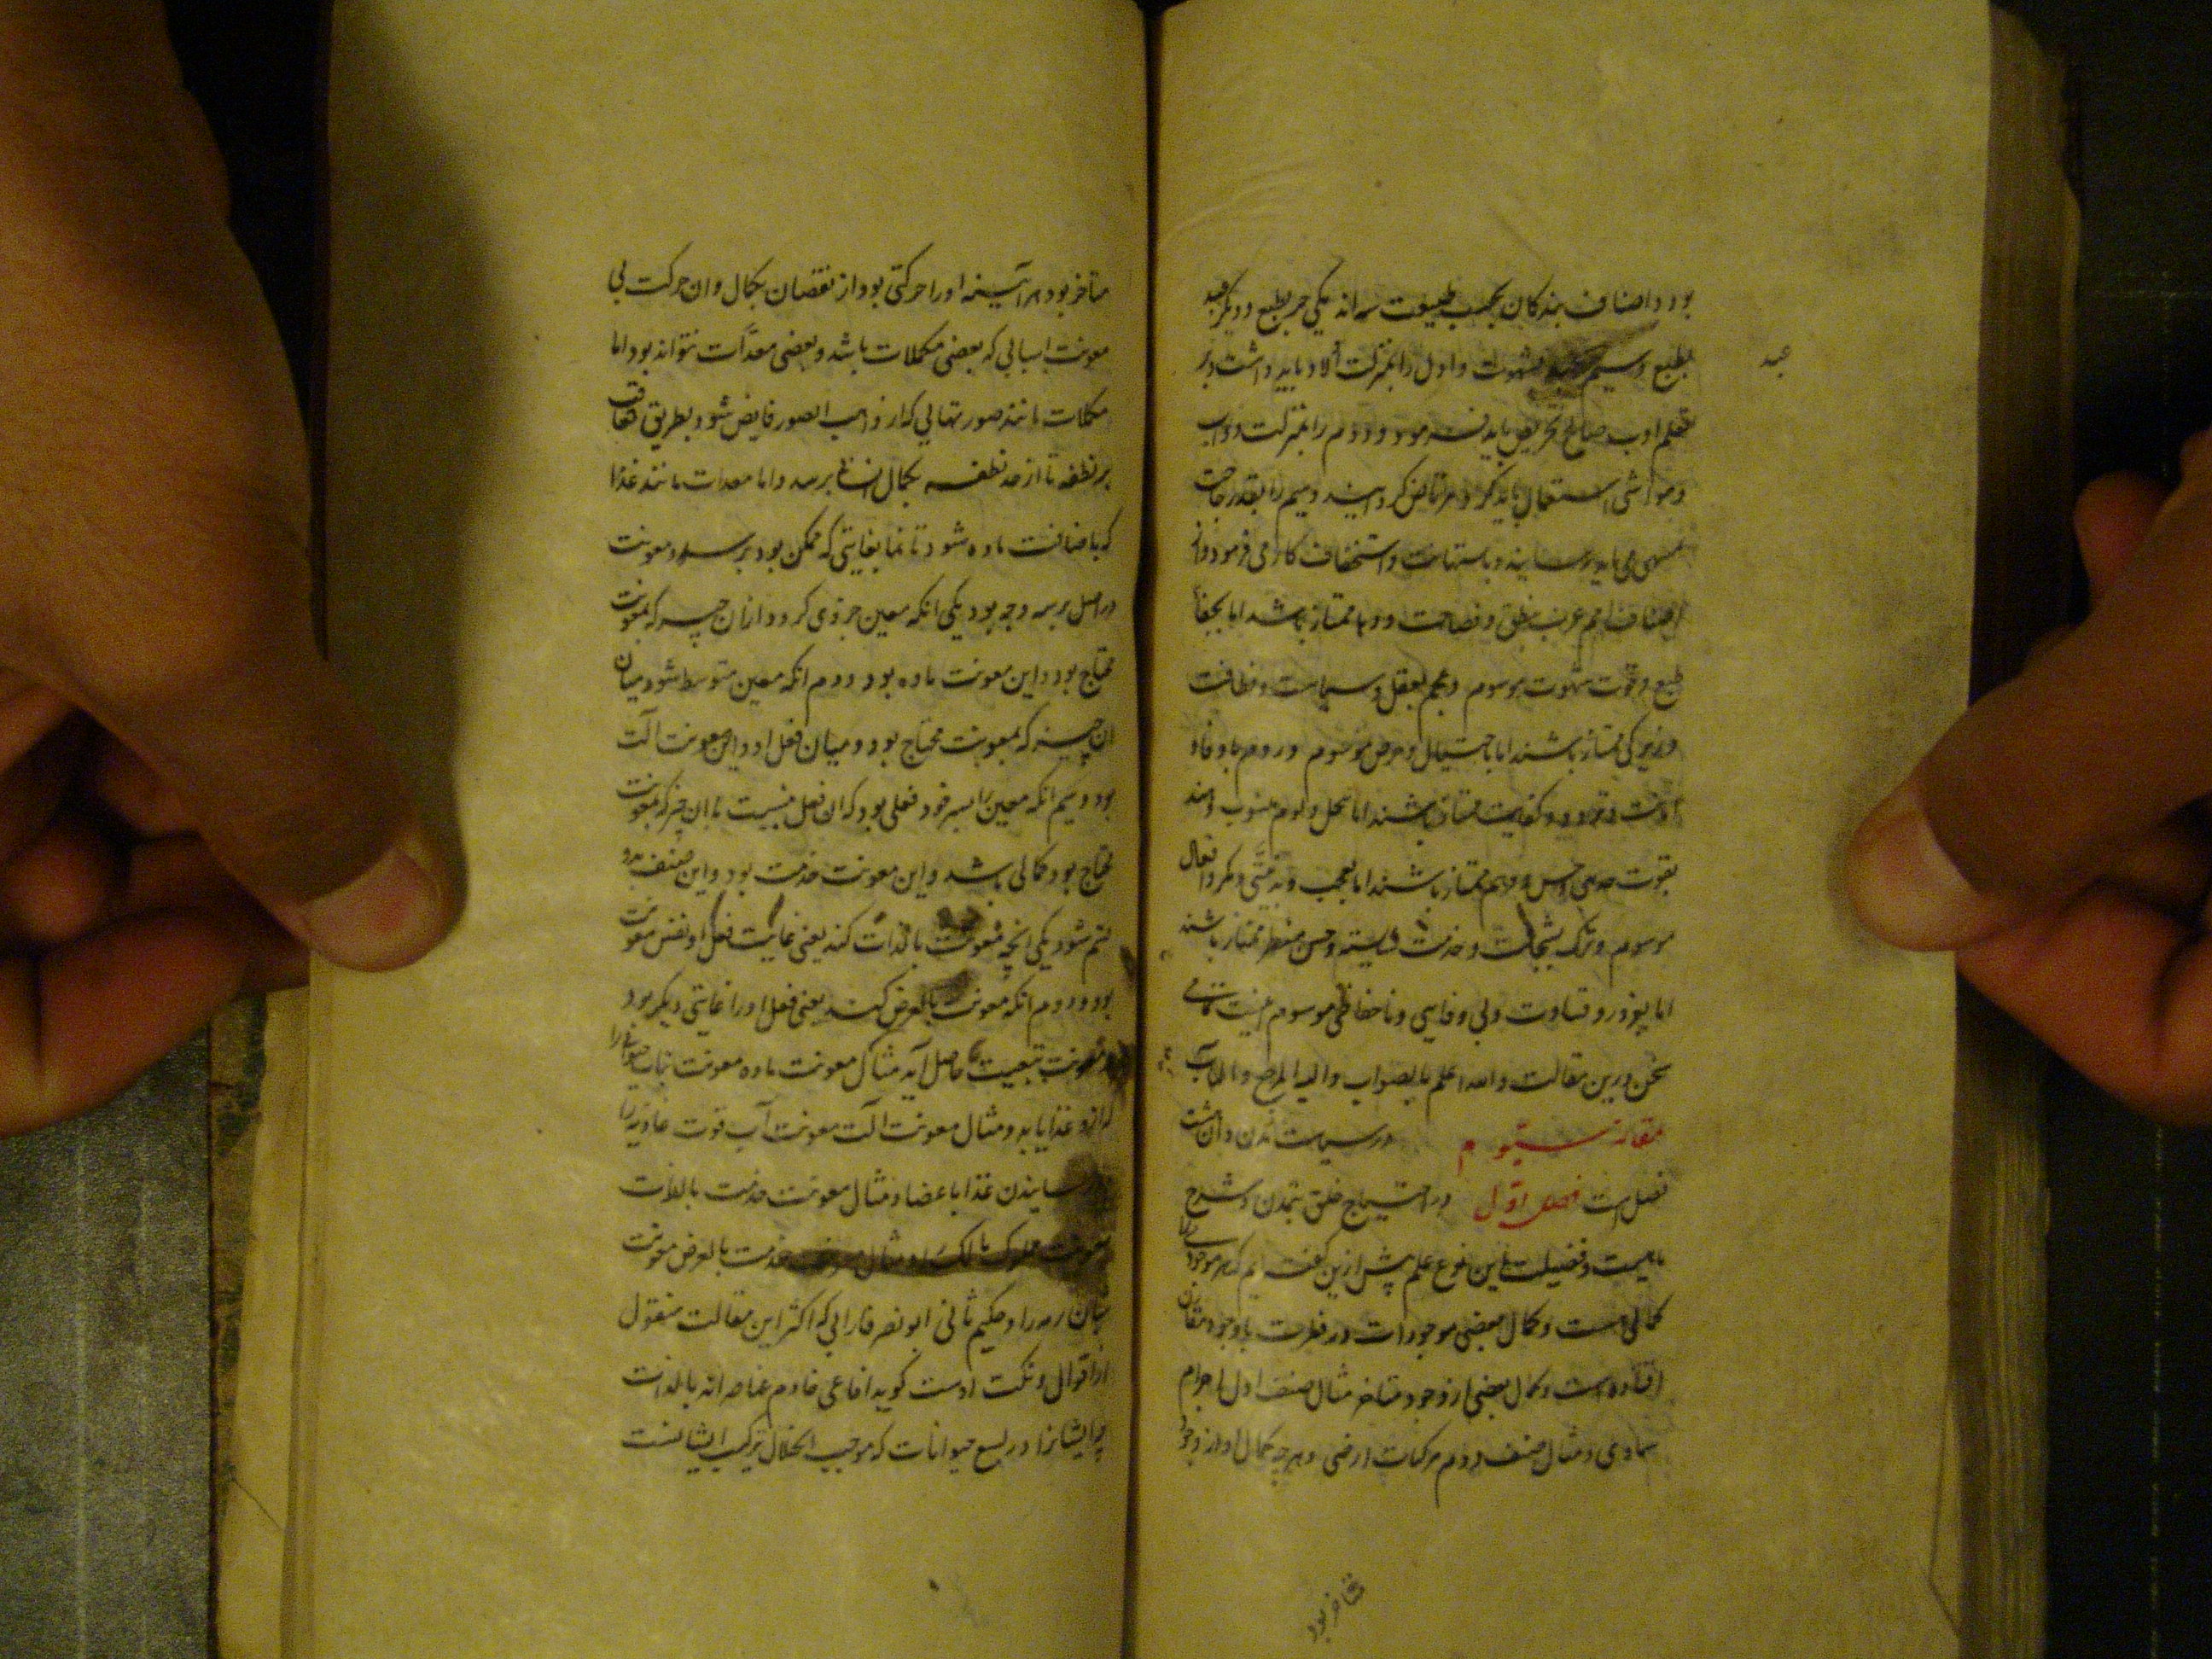 بود و اصناف بندکان بحسب طبیعت سه اند یکی حر بطبع و دیکر عبد
بطبع و سیم عبد شهوت و اول را بمنزلت اولاد باید داشت و بر
عبد
تعلم ادب صالح تحریص باید فرمود و دوم را بمنزلت دواب
و مواشی استعمال باید کرد و مرتاض کردانید و سیم را بقدر حاجت
می باید رسانید و باستهانت و استخفاف کار می فرمود و از
اصناف امم عرب بنطق و فصاحت و دها ممتاز باشد اما بجفاء
طبع و قوت شهوت موسوم و عجم بعقل و سیاست و نظافت
و زیرکی ممتاز باشند اما باحتیال و حرص موسوم و روم بوفا و
امانت و تودد و کفایت ممتاز باشند اما ببخل و لوم منسوب و هند
بقوت حدس و حس و وهم ممتاز باشند اما بعجب و بدنیتی و مکر و افتعال
موسوم و ترک بشجاعت و خدمت شایسته و حسن منظر ممتاز باشند
اما بغدر و قساوت و بی حفاظی موسوم اینست تمامی
سخن درین مقالت و الله اعلم بالصواب و الیه المرجع و المآب
مقالة سیوم در سیاست مدن و آن هشت
فصل است فصل اول در احتیاج خلق بتمدن و شرح
ماهیت و فضیلت این نوع علم پیش ازین کفته ایم که هر موجودی را
کمالی هست و کمال بعضی موجودات در فطرت با وجود مقارن
افتاده است و کمال بعضی از وجود متاخر مثال صنف اول اجرام
سماوی و مثال صنف دوم مرکبات ارضی و هر چه کمال او از وجود
متاخر بود
متاخر بود هرآینه او را حرکتی بود از نقصان بکمال و آن حرکت بی
معونت اسبابی که بعضی مکملات باشد و بعضی معدّات نتواند بود اما
مکملات مانند صورتهایی که از واهب الصور فایض شود بطریق تعاقب
بر نطفه تا از حد نطفه بکمال انسانی برسد و اما معدات مانند غذا
که باضافت ماده شود تا نما بغایتی که ممکن بود برسد و معونت
در اصل بر سه وجه بود یکی آنکه معین جزوی کردد از آن چیز که بمعونت
محتاج بود و این معونت ماده بود و دوم آنکه معین متوسط شود میان
آن چیز که بمعونت محتاج بود و میان فعل او و این معونت آلت
بود و سیم آنکه معین را بسر خود فعلی بود که آن فعل بنسبت با آن چیز که بمعونت
محتاج بود کمالی باشد و این معونت خدمت بود و این صنف بدو
قسم شود یکی آنچه معونت بالذات کند یعنی غایت فعل او نفس معونت
بود و دوم آنکه معونت بالعرض کند یعنی فعل او را غایتی دیکر بود
و معونت بتبعیت حاصل آید مثال معونت ماده معونت نبات حیوانی را
که ازو غذا یابد و مثال معونت آلت معونت آب قوت غاذیه را
در رسانیدن غذا باعضا و مثال معونت خدمت بالذات
معونت مملوک مالک را و مثال معونت خدمت بالعرض معونت
شبان رمه را و حکیم ثانی ابو نصر فارابی که اکثر این مقالت منقول
از اقوال و نکت اوست کوید افاعی خادم عناصر اند بالذات
چه ایشانرا در لسع حیوانات که موجب انحلال ترکیب ایشانست